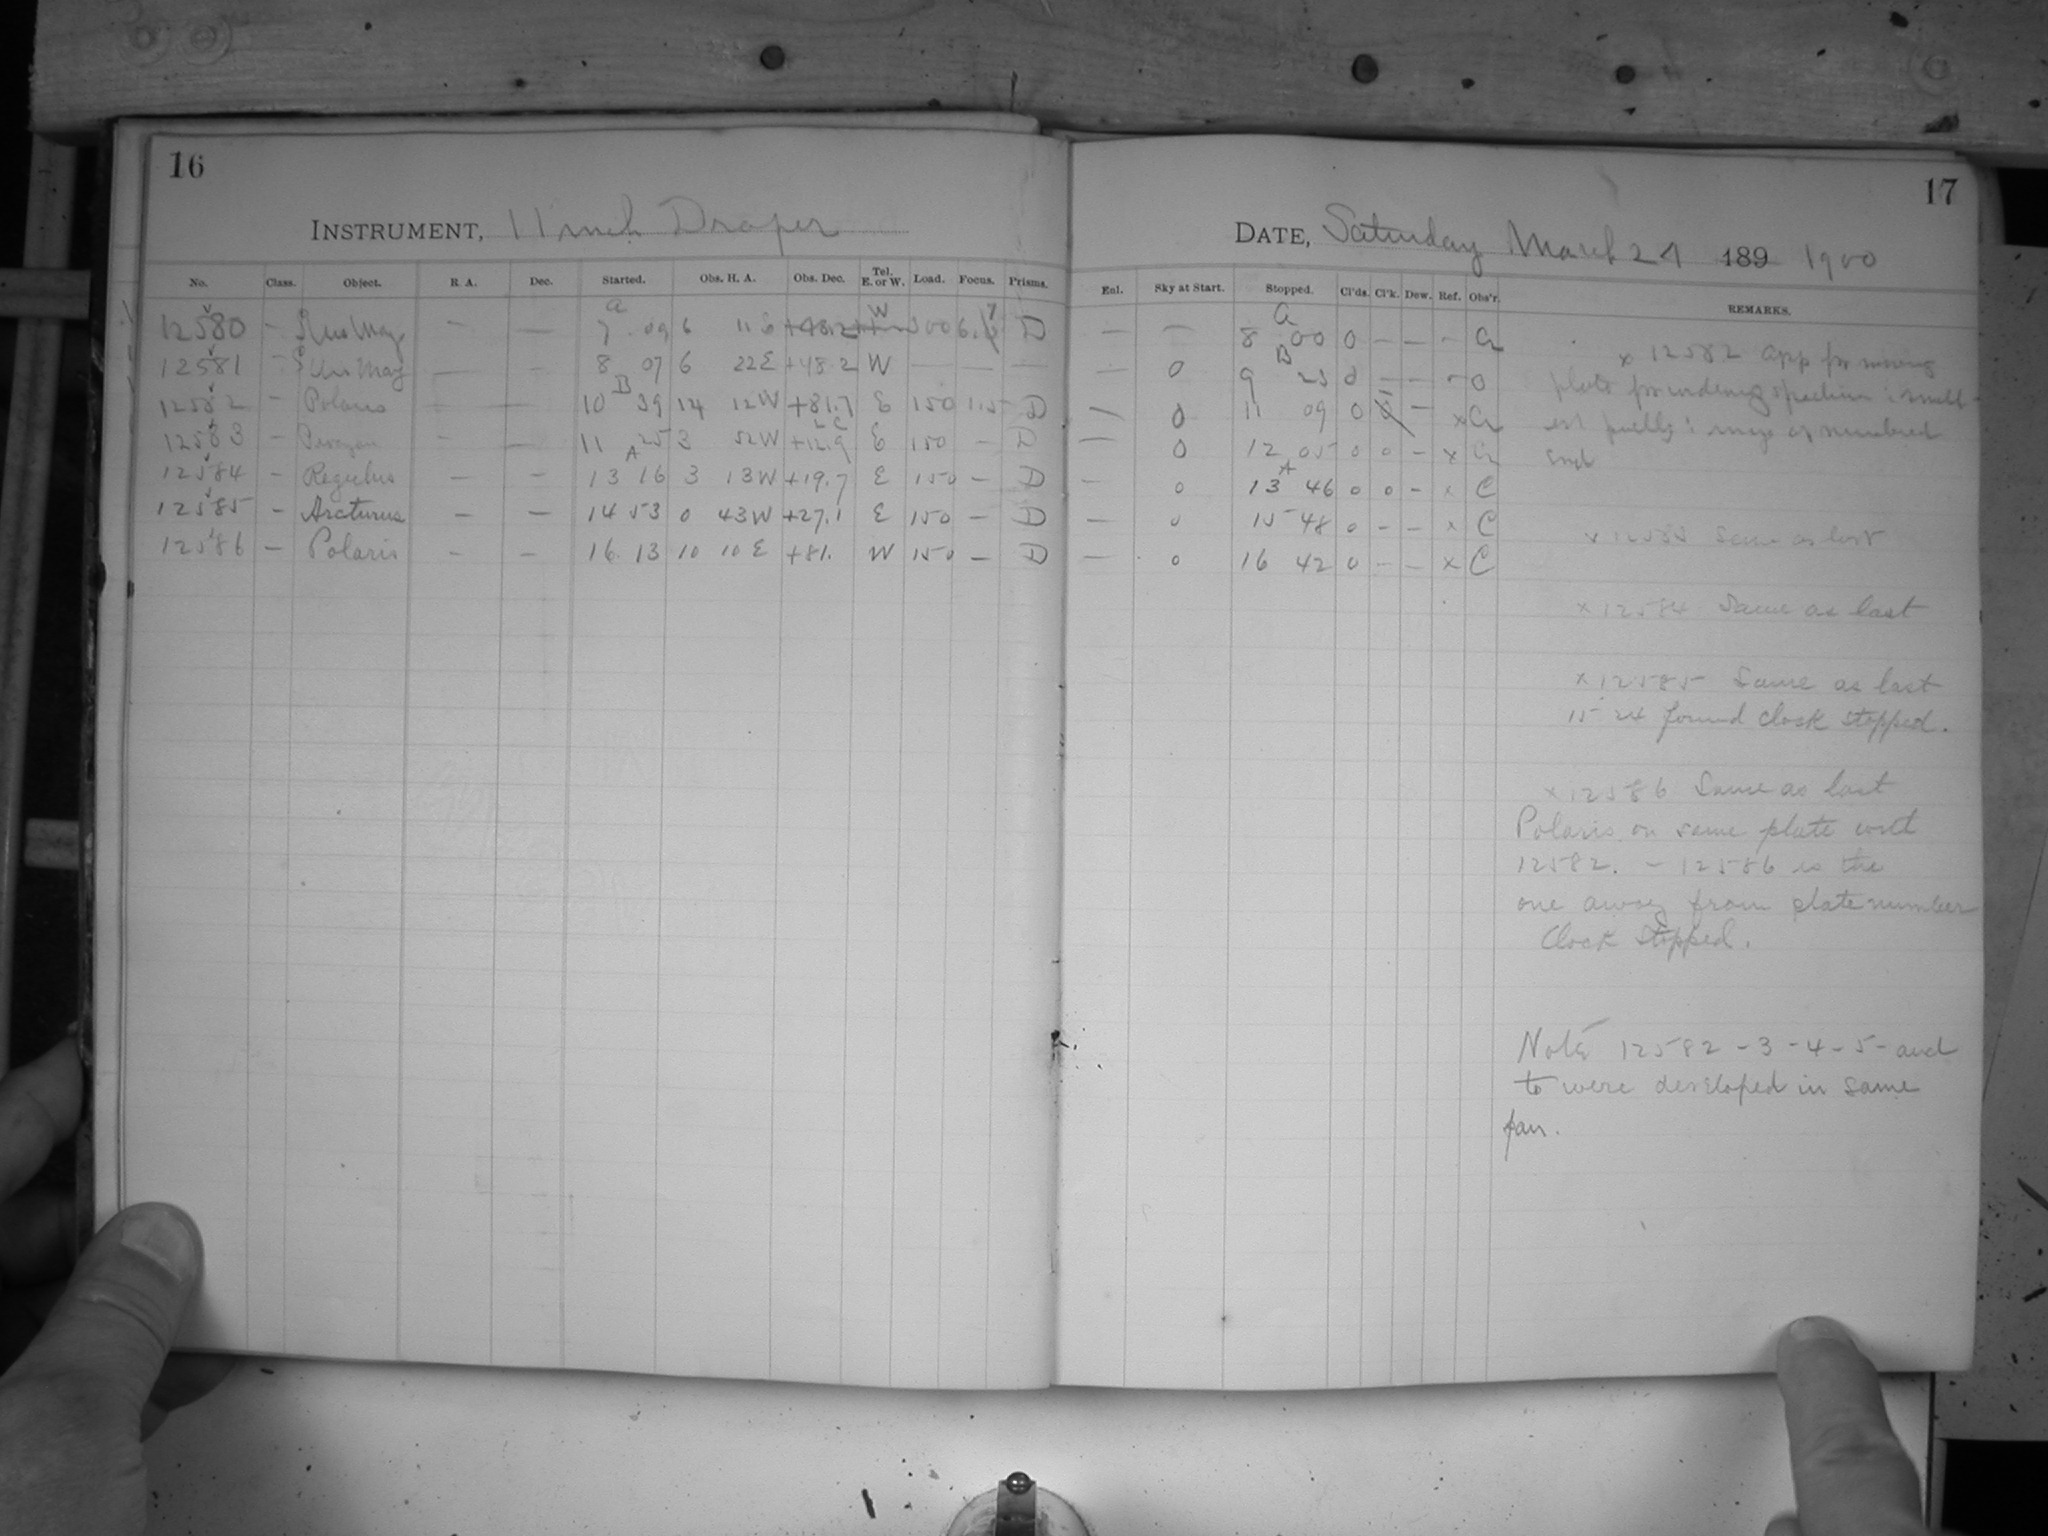 16
INSTRUMENT, 11 inch Draper
No. Class. Object. R. A. Dec. Started. Obs. H. A. Obs. Dec. Tel. E. or W. Load. Focus. Prisms.
12580 - — 7 09 6 +48.2 W D
12581 - — — 8 07 6 22E +48.2 W — — —
12582 - Polaris — 10 39 14 12W +81.7 E 150 D
12583 - — 11 25 3 52W +12.9 E 150 - D
12584 - Regulus — - 13 16 3 13W +19.7 E 150 - D
12585 - Arcturus — — 14 53 0 43W +27.1 E 150 - D
12586 — Polaris - - 16 13 10 10 E +81. W 150 — D
17
DATE, Saturday March 24 189 1900
Enl. Sky at Start. Stopped. Cl'ds. Cl'k. Dew. Ref. Obs'r. REMARKS.
— — 8 00 0 — — -
0 9 23 — — - O
0 11 09 0 — x
— 0 12 05 0 0 - x
— 0 13 46 0 0 - x C
— 0 15 48 0 - - x C
— 0 16 42 0 - - x C
x 12582 app for
plate for
numbered
end
x 12583 Same as last
x 12584 Same as last
x 12585 Same as last
15 24 found clock stopped.
x 12586 Same as last
Polaris on same plate with
12582. - 12586 is the
one away from plate number
Clock stopped.
Note 12582 - 3 - 4 - 5 - and
to were developed in same
pan.